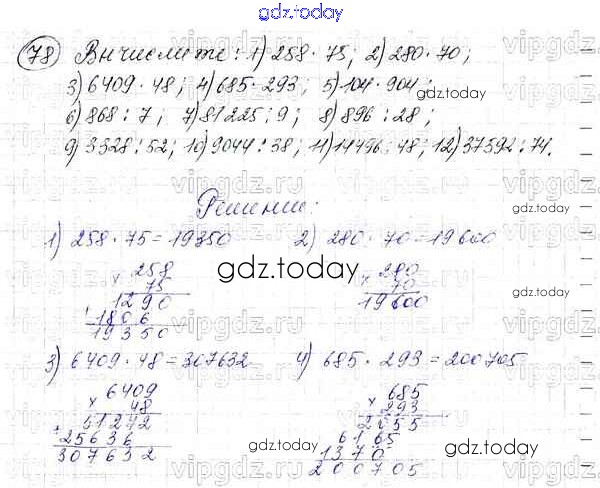 gdz.today
78) Вычислите: 1) 258 · 75; 2) 280 · 70;
3) 6409 · 48; 4) 685 · 293; 5) 104 · 904;
6) 868 : 7; 7) 81225 : 9; 8) 896 : 28;
9) 3328 : 52; 10) 9044 : 38; 11) 14496 : 48; 12) 37592 : 74.
Решение:
1) 258 · 75 = 19350
× 258
75
1290
+ 1806
19350
2) 280 · 70 = 19600
× 280
70
19600
3) 6409 · 48 = 307632
× 6409
48
51272
+ 25636
307632
4) 685 · 293 = 200705
× 685
293
2055
6165
1370
200705
gdz.today
gdz.today
gdz.today
gdz.today
gdz.today
gdz.today
vipgdz.ru
vipgdz.ru
vipgdz.ru